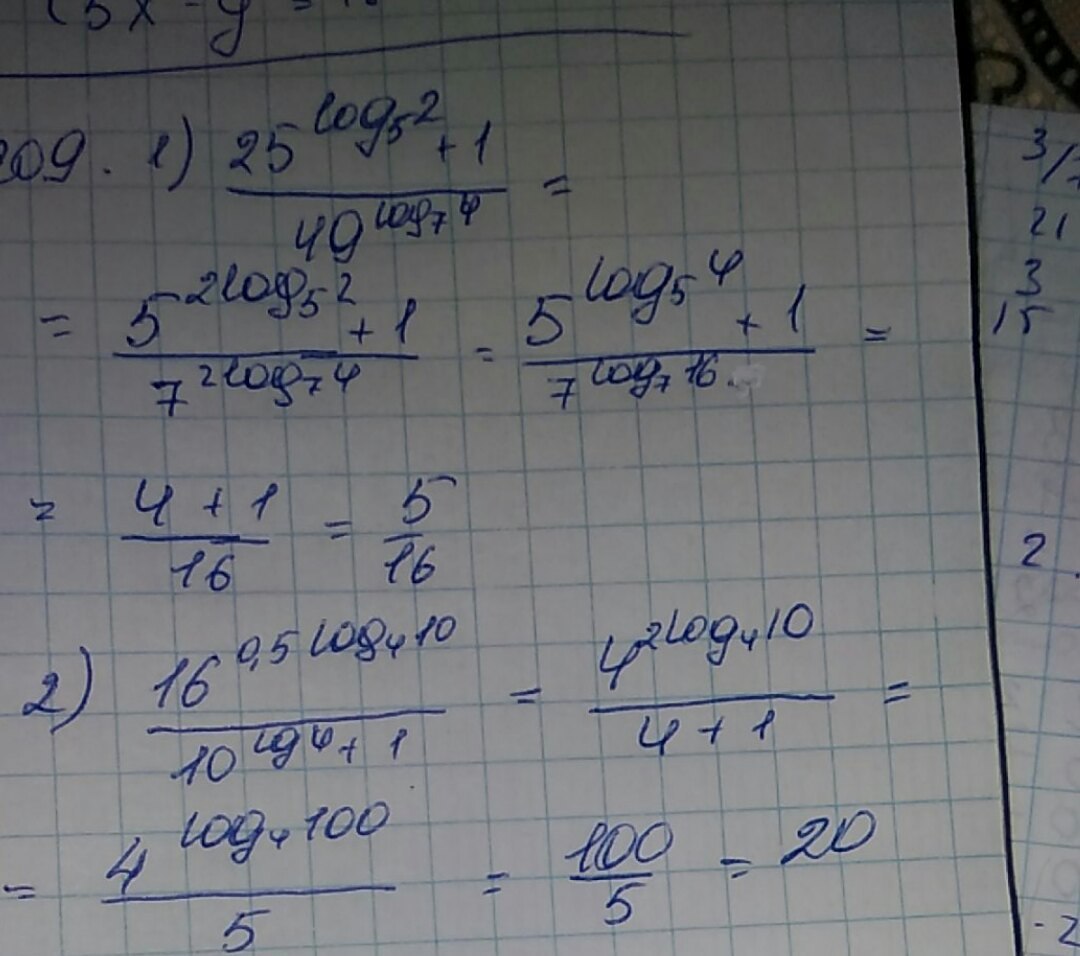 (5x - y =
209. 1) (25^(log₅2) + 1) / 49^(log₇4) =
= (5^(2log₅2) + 1) / 7^(2log₇4) = (5^(log₅4) + 1) / 7^(log₇16) =
= (4 + 1) / 16 = 5/16
2) 16^(0,5 log₄10) / (10^(lg4) + 1) = 4^(2log₄10) / (4 + 1) =
= 4^(log₄100) / 5 = 100/5 = 20
3/
21
3
15
2
-2